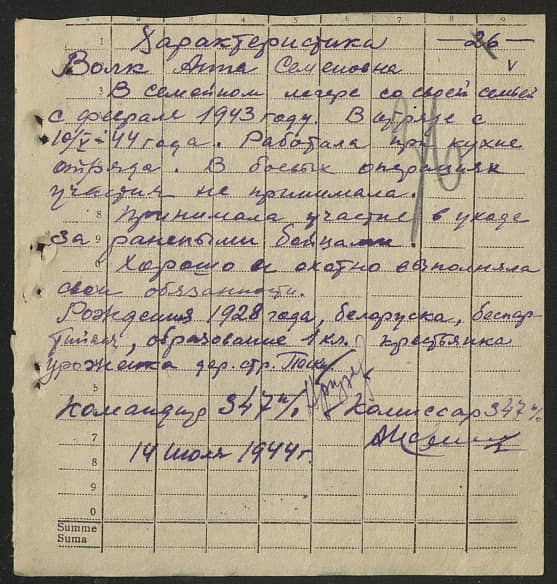 Характеристика —26—
Волк Анна Семеновна
В семейном лагере со своей семьей
с февраля 1943 году. В отряде с
10/V-44 года. Работала при кухне
отряда. В боевых операциях
участия не принимала.
Принимала участие в уходе
за ранеными бойцами.
Хорошо и охотно выполняла
свои обязанности.
Рождения 1928 года, белоруска, беспар-
тийная, образование 1 кл. крестьянка
урожен­ка дер. стр.
Командир 347 п/о Комиссар 347 п/о
14 июля 1944 г.
1 2 3 4 5 6 7 8 9
1
3
8
9
5
7
8
9
0
Summe
Suma